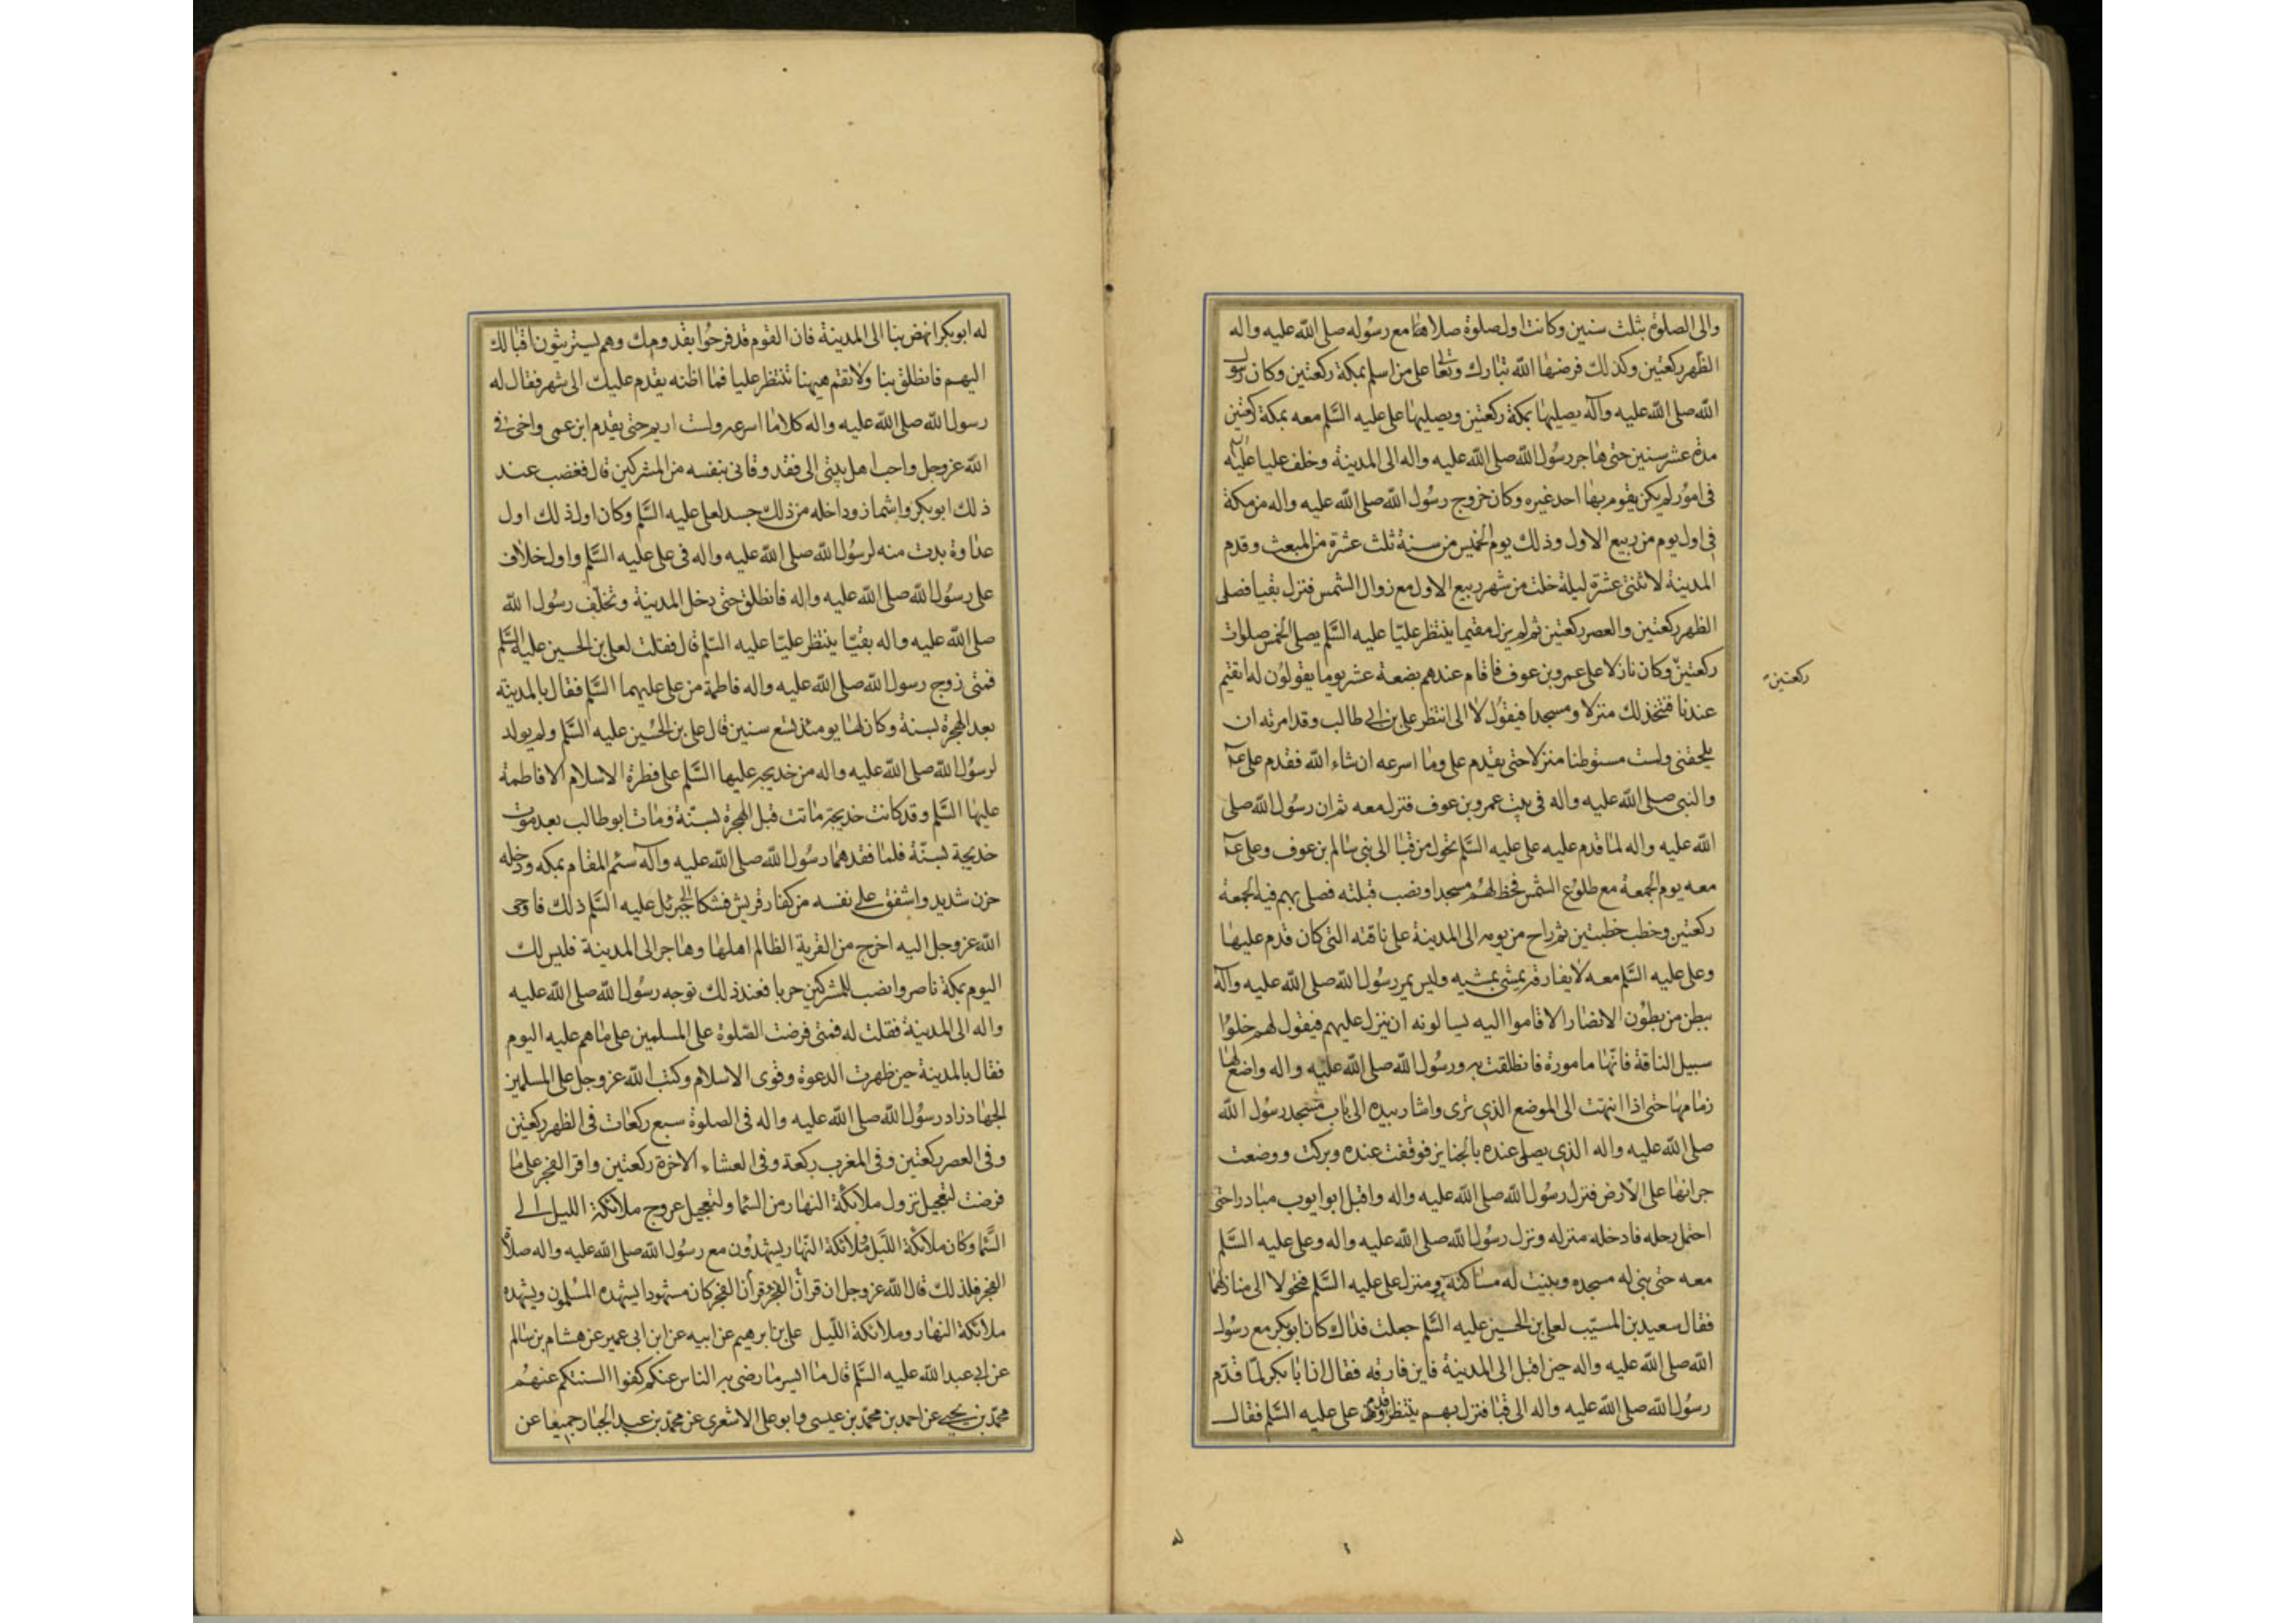 والى الصلوة بثلث سنين وكانت اول صلوة صلاها مع رسوله صلى الله عليه واله
الظهر ركعتين وكذلك فرضها الله تبارك وتعالى على من اسلم بمكة ركعتين وكان رسول
الله صلى الله عليه وآله يصليها بمكة ركعتين ويصليها على عليه السلم معه بمكة ركعتين
مدة عشر سنين حتى هاجر رسول الله صلى الله عليه واله الى المدينة وخلف عليا عليه
فى امور لم يكن يقوم بها احد غيره وكان خروج رسول الله صلى الله عليه واله من مكة
فى اول يوم من ربيع الاول وذلك يوم الخميس من سنة ثلث عشرة من المبعث وقدم
المدينة لاثنتى عشرة ليلة خلت من شهر ربيع الاول مع زوال الشمس فنزل بقبا فصلى
الظهر ركعتين والعصر ركعتين ثم لم يزل مقيما ينتظر عليا عليه السلم يصلى الخمس صلوات
ركعتين وكان نازلا على عمرو بن عوف فاقام عندهم بضعة عشر يوما يقولون له اتقيم
ركعتين
عندنا فنتخذ لك منزلا ومسجدا فيقول لا انى انتظر على بن ابى طالب وقد امرته ان
يلحقنى ولست مستوطنا منزلا حتى يقدم على وما اسرعه ان شاء الله فقدم على
والنبى صلى الله عليه واله فى بيت عمرو بن عوف فنزل معه ثم ان رسول الله صلى
الله عليه واله لما قدم عليه على عليه السلم تحول من قبا الى بنى سالم بن عوف وعلى
معه يوم الجمعة مع طلوع الشمس فخط لهم مسجدا ونصب قبلته فصلى بهم فيه الجمعة
ركعتين وخطب خطبتين ثم راح من يومه الى المدينة على ناقته التى كان قدم عليها
وعلى عليه السلم معه لا يفارقه يمشى بمشيه وليس يمر رسول الله صلى الله عليه وآله
ببطن من بطون الانصار الا قاموا اليه يسالونه ان ينزل عليهم فيقول لهم خلوا
سبيل الناقة فانها مامورة فانطلقت به ورسول الله صلى الله عليه واله واضع لها
زمامها حتى اذا انتهت الى الموضع الذى ترى واشار بيده الى باب مسجد رسول الله
صلى الله عليه واله الذى يصلى عنده بالجنايز فوقفت عنده وبركت ووضعت
جرانها على الارض فنزل رسول الله صلى الله عليه واله واقبل ابو ايوب مبادرا حتى
احتمل رحله فادخله منزله ونزل رسول الله صلى الله عليه واله وعلى عليه السلم
معه حتى بنى له مسجده وبنيت له مساكنه ومنزل على عليه السلم فتحولا الى منازلهما
فقال سعيد بن المسيب لعلى بن الحسين عليه السلم جعلت فداك كان ابوبكر مع رسول
الله صلى الله عليه واله حين اقبل الى المدينة فاين فارقه فقال ان ابا بكر لما قدم
رسول الله صلى الله عليه واله الى قبا فنزل بهم ينتظر قدوم على عليه السلم فقال
له ابوبكر انهض بنا الى المدينة فان القوم قد فرحوا بقدومك وهم يستريثون اقبالك
اليهم فانطلق بنا ولا تقم هيهنا تنتظر عليا فما اظنه يقدم عليك الى شهر فقال له
رسول الله صلى الله عليه واله كلا ما اسرعه ولست اريم حتى يقدم ابن عمى واخى فى
الله عز وجل واحب اهل بيتى الى فقد وقانى بنفسه من المشركين قال فغضب عند
ذلك ابوبكر واشماز وداخله من ذلك حسد لعلى عليه السلم وكان اول ذلك اول
عداوة بدت منه لرسول الله صلى الله عليه واله فى على عليه السلم واول خلاف
على رسول الله صلى الله عليه واله فانطلق حتى دخل المدينة وتخلف رسول الله
صلى الله عليه واله بقبا ينتظر عليا عليه السلم قال فقلت لعلى بن الحسين عليه السلم
فمتى زوج رسول الله صلى الله عليه واله فاطمة من على عليهما السلم فقال بالمدينة
بعد الهجرة بسنة وكان لها يومئذ تسع سنين قال على بن الحسين عليه السلم ولم يولد
لرسول الله صلى الله عليه واله من خديجه عليها السلم على فطرة الاسلام الا فاطمة
عليها السلم وقد كانت خديجة ماتت قبل الهجرة بسنة ومات ابوطالب بعد موت
خديجة بسنة فلما فقدهما رسول الله صلى الله عليه وآله سئم المقام بمكه ودخله
حزن شديد واشفق على نفسه من كفار قريش فشكا الى جبرئيل عليه السلم ذلك فاوحى
الله عز وجل اليه اخرج من القرية الظالم اهلها وهاجر الى المدينة فليس لك
اليوم بمكة ناصر وانصب للمشركين حربا فعند ذلك توجه رسول الله صلى الله عليه
واله الى المدينة فقلت له فمتى فرضت الصلوة على المسلمين على ما هم عليه اليوم
فقال بالمدينة حين ظهرت الدعوة وقوى الاسلام وكتب الله عز وجل على المسلمين
الجهاد زاد رسول الله صلى الله عليه واله فى الصلوة سبع ركعات فى الظهر ركعتين
وفى العصر ركعتين وفى المغرب ركعة وفى العشاء الاخرة ركعتين واقر الفجر على ما
فرضت لتعجيل نزول ملائكة النهار من السما ولتعجيل عروج ملائكة الليل الى
السما وكان ملائكة الليل وملائكة النهار يشهدون مع رسول الله صلى الله عليه واله صلاة
الفجر فلذلك قال الله عز وجل ان قرآن الفجر وقرآن الفجر كان مشهودا يشهده المسلمون ويشهده
ملائكة النهار وملائكة الليل على بن ابرهيم عن ابيه عن ابن ابى عمير عن هشام بن سالم
عن ابى عبد الله عليه السلم قال ما ايسر ما رضى به الناس عنكم كفوا السنتكم عنهم
محمد بن يحيى عن احمد بن محمد بن عيسى وابو على الاشعرى عن محمد بن عبد الجبار جميعا عن